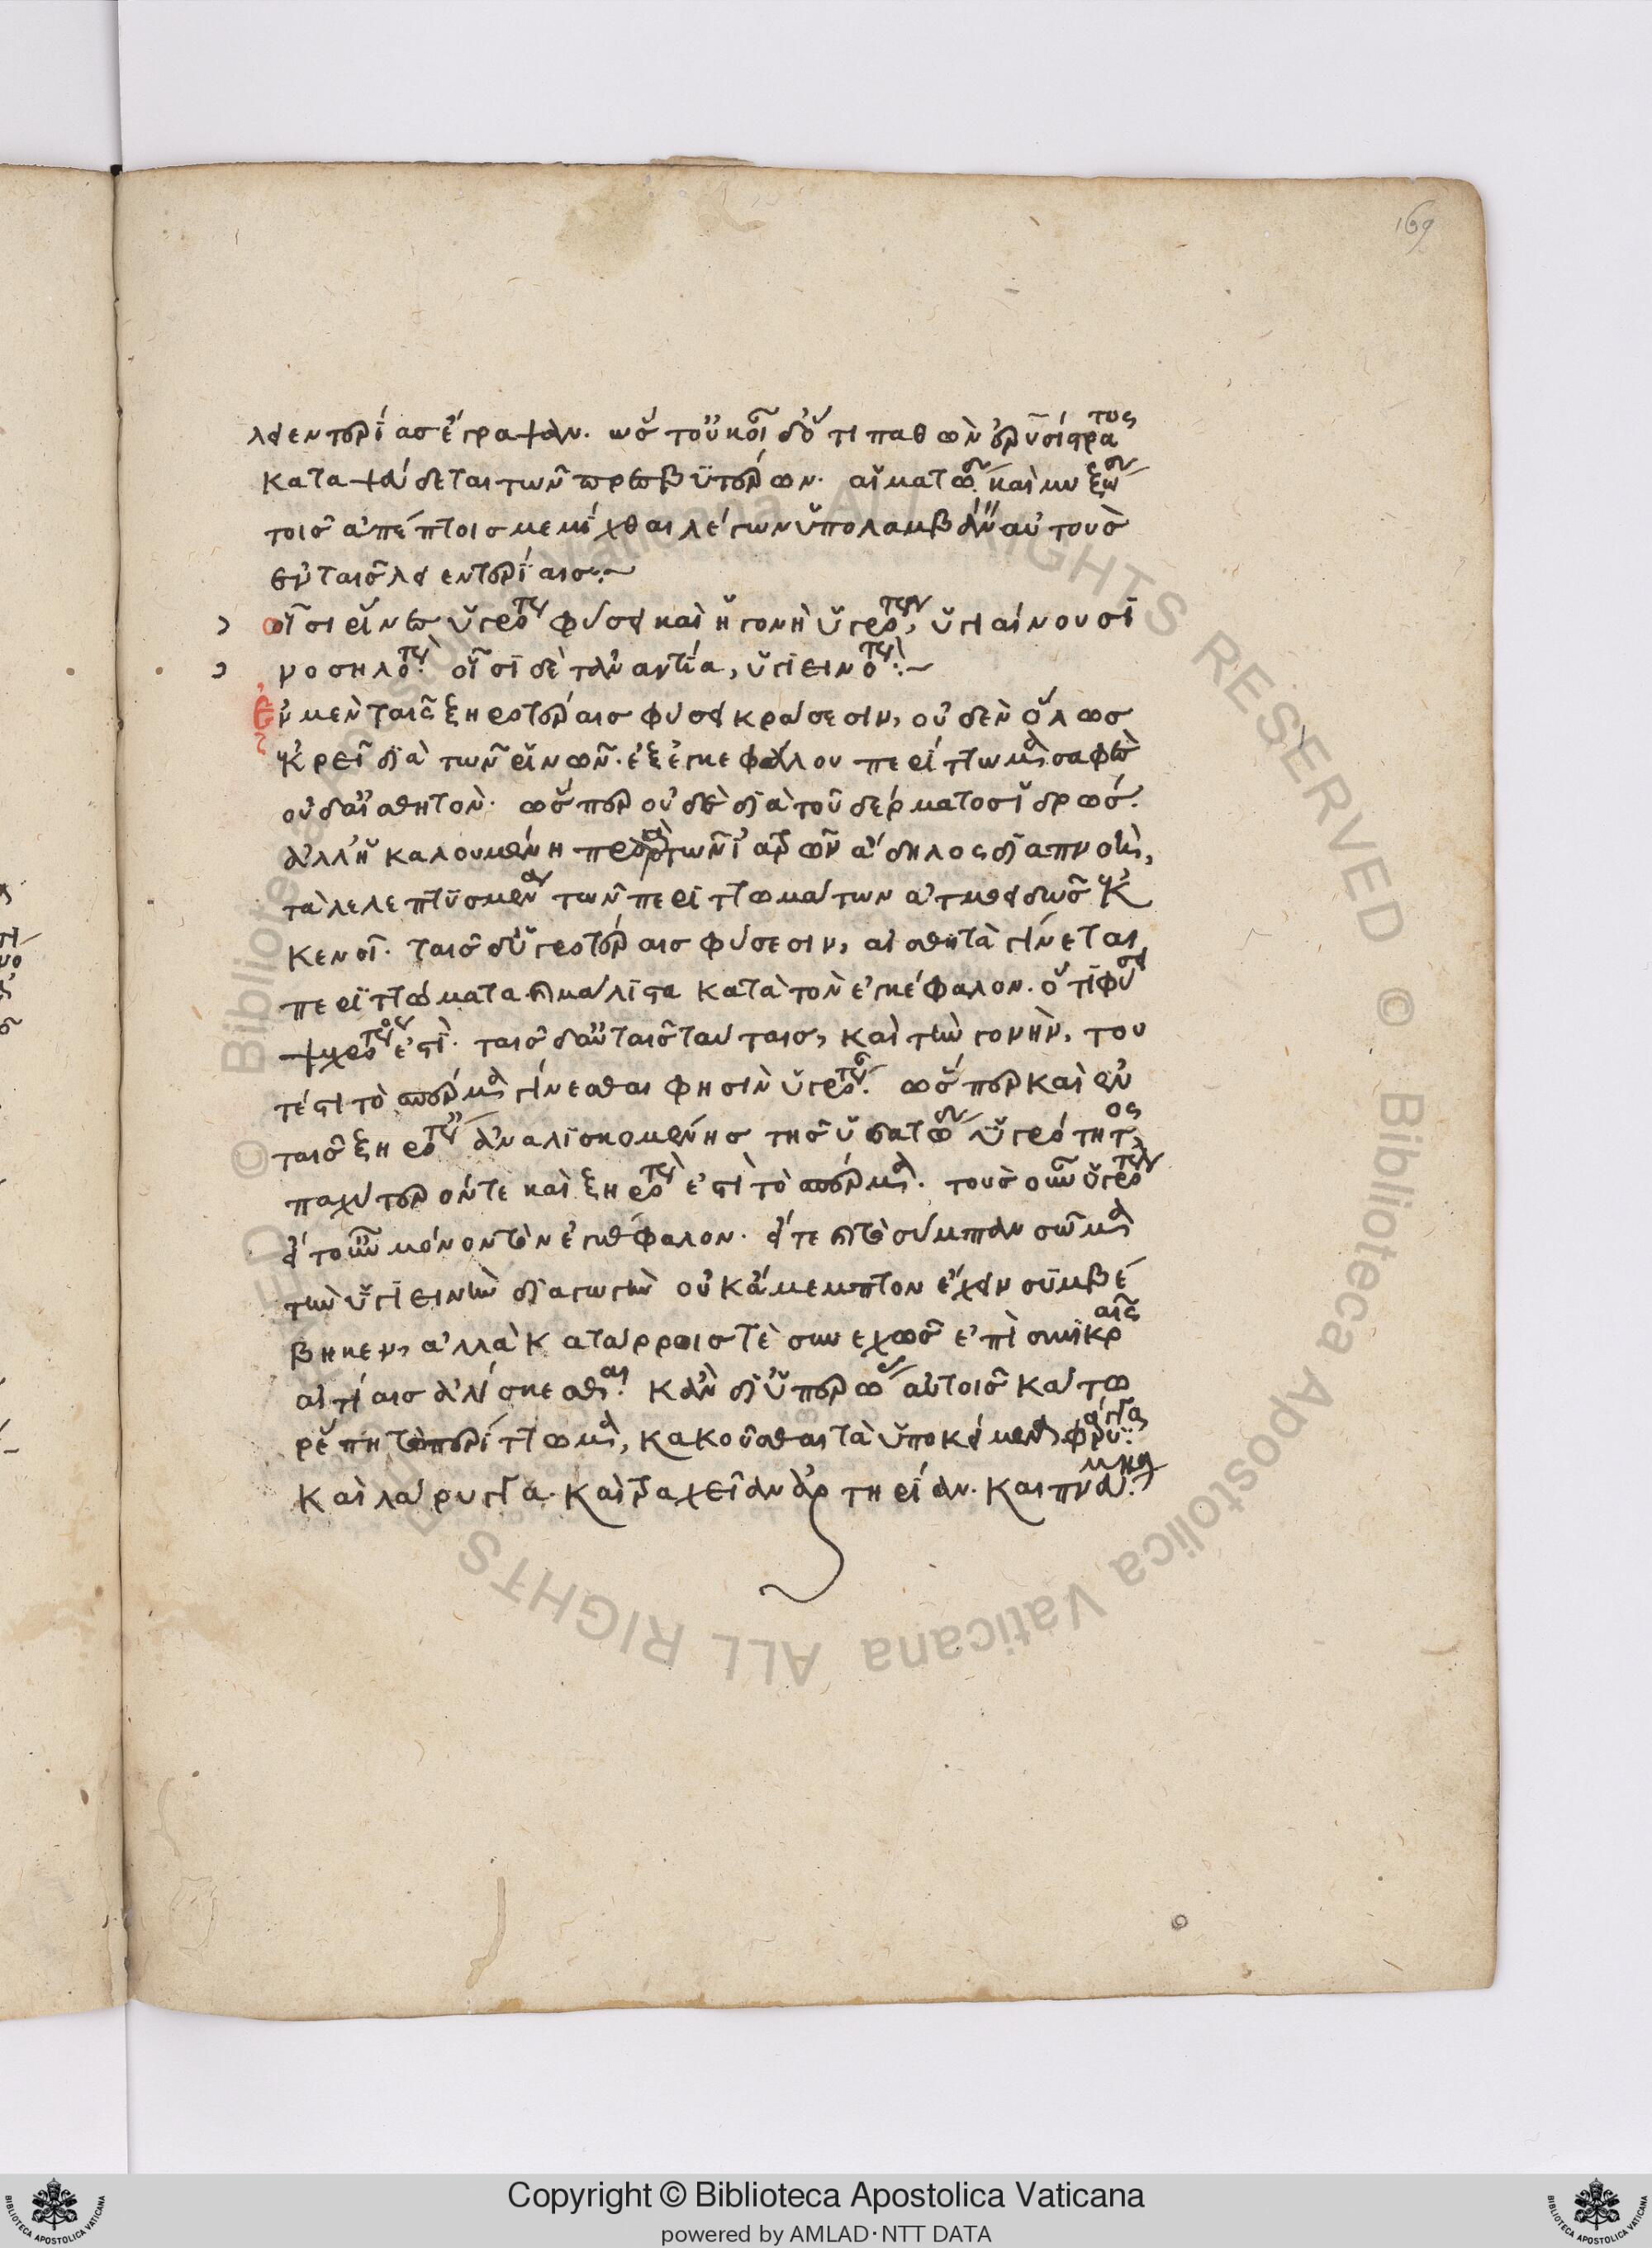 169
λειεντερίας ἔγραψαν. ὡς τοὐκοι δ' ὅτι παθῶν ἐρυσίστρατος
καταψεύδεται τῶν πρεσβυτέρων. αἱματῶδες καὶ μυξῶδες
τοῖς ἀπέπτοις μεμίχθαι λέγων ὑπολαμβάνειν αὐτοὺς
ἐν ταῖς λειεντερίαις:~
οἷσι ῥῖνες ὑγρότεραι φύσει καὶ ἡ γονὴ ὑγροτέρη, ὑγιαίνουσι
νοσηλότερον οἷσι δὲ τἀναντία, ὑγιεινότερον:~
Ἐν μὲν ταῖς ξηροτέραις φύσει κράσεσιν, οὐδὲν ὅλως
ἐκρεῖ διὰ τῶν ῥινῶν. ἐξ ἐγκεφάλου περίττωμα σαφῶς
οὐδ' αἰσθητόν. ὥσπερ οὐδὲ διὰ τοῦ δέρματος ἱδρώς.
ἀλλ' ἡ καλουμένη πρὸς τῶν ἰατρῶν ἄδηλος διαπνοὴ,
τὰ λελεπτυσμένα τῶν περιττωμάτων ἀτμοειδῶς ἐκ
κενοῖ. ταῖς δ' ὑγροτέραις φύσεσιν, αἰσθητὰ γίνεται
περιττώματα καὶ μάλιστα κατὰ τὸν ἐγκέφαλον. ὅτι φύσει
ψυχρότερός ἐστι. ταῖς δ' αὐταῖς ταύταις, καὶ τὴν γονὴν, του
τέστι τὸ σπέρμα γίνεσθαι φησὶν ὑγρότερον. ὥσπερ καὶ ἐν
ταῖς ξηροτέραις ἀναλισκομένης τῆς ὑδατώδους ὑγρότητος
παχύτερόν τε καὶ ξηρότερον ἐστὶ τὸ σπέρμα. τοὺς οὖν ὑγρότερον
εἴτ' οὖν μόνον τὸν ἐγκέφαλον. εἴτε καὶ τὸ σύμπαν σῶμα
τὴν ὑγιεινὴν διαγωγὴν οὐκ ἄμεμπτον ἔχειν συμβέ
βηκεν, ἀλλὰ κατάρροις τὲ συνεχῶς ἐπὶ σμικραῖς
αἰτίαις ἁλίσκεσθαι. κἂν δι' ὑπερώας αὐτοῖς κάτω
ῥέπῃ τὸ περίττωμα, κακοῦσθαι τὰ ὑποκείμενα φάρυγγα
καὶ λάρυγγα. καὶ τραχεῖαν ἀρτηρίαν. καὶ πνεύμονα